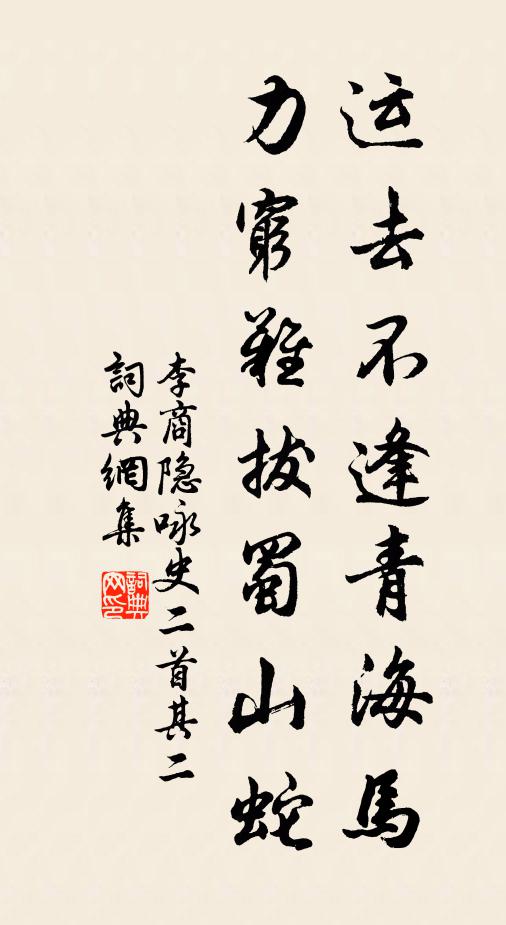 运去不逢青海馬
力窮難拔蜀山蛇
李商隐咏史二首其二
詞典網集
詞典网印